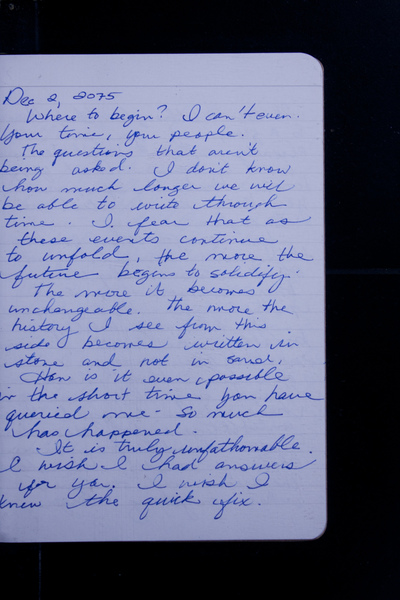 Dec 2, 2075
Where to begin? I can't even.
Your time, your people.
The questions that aren't
being asked. I don't know
how much longer we will
be able to write through
time. I fear that as
these events continue
to unfold, the more the
future begins to solidify.
The more it becomes
unchangeable. The more the
history I see from this
side becomes written in
stone and not in sand.
How is it even possible
in the short time you have
queried me - so much
has happened.
It is truly unfathomable.
I wish I had answers
for you. I wish I
knew the quick fix.